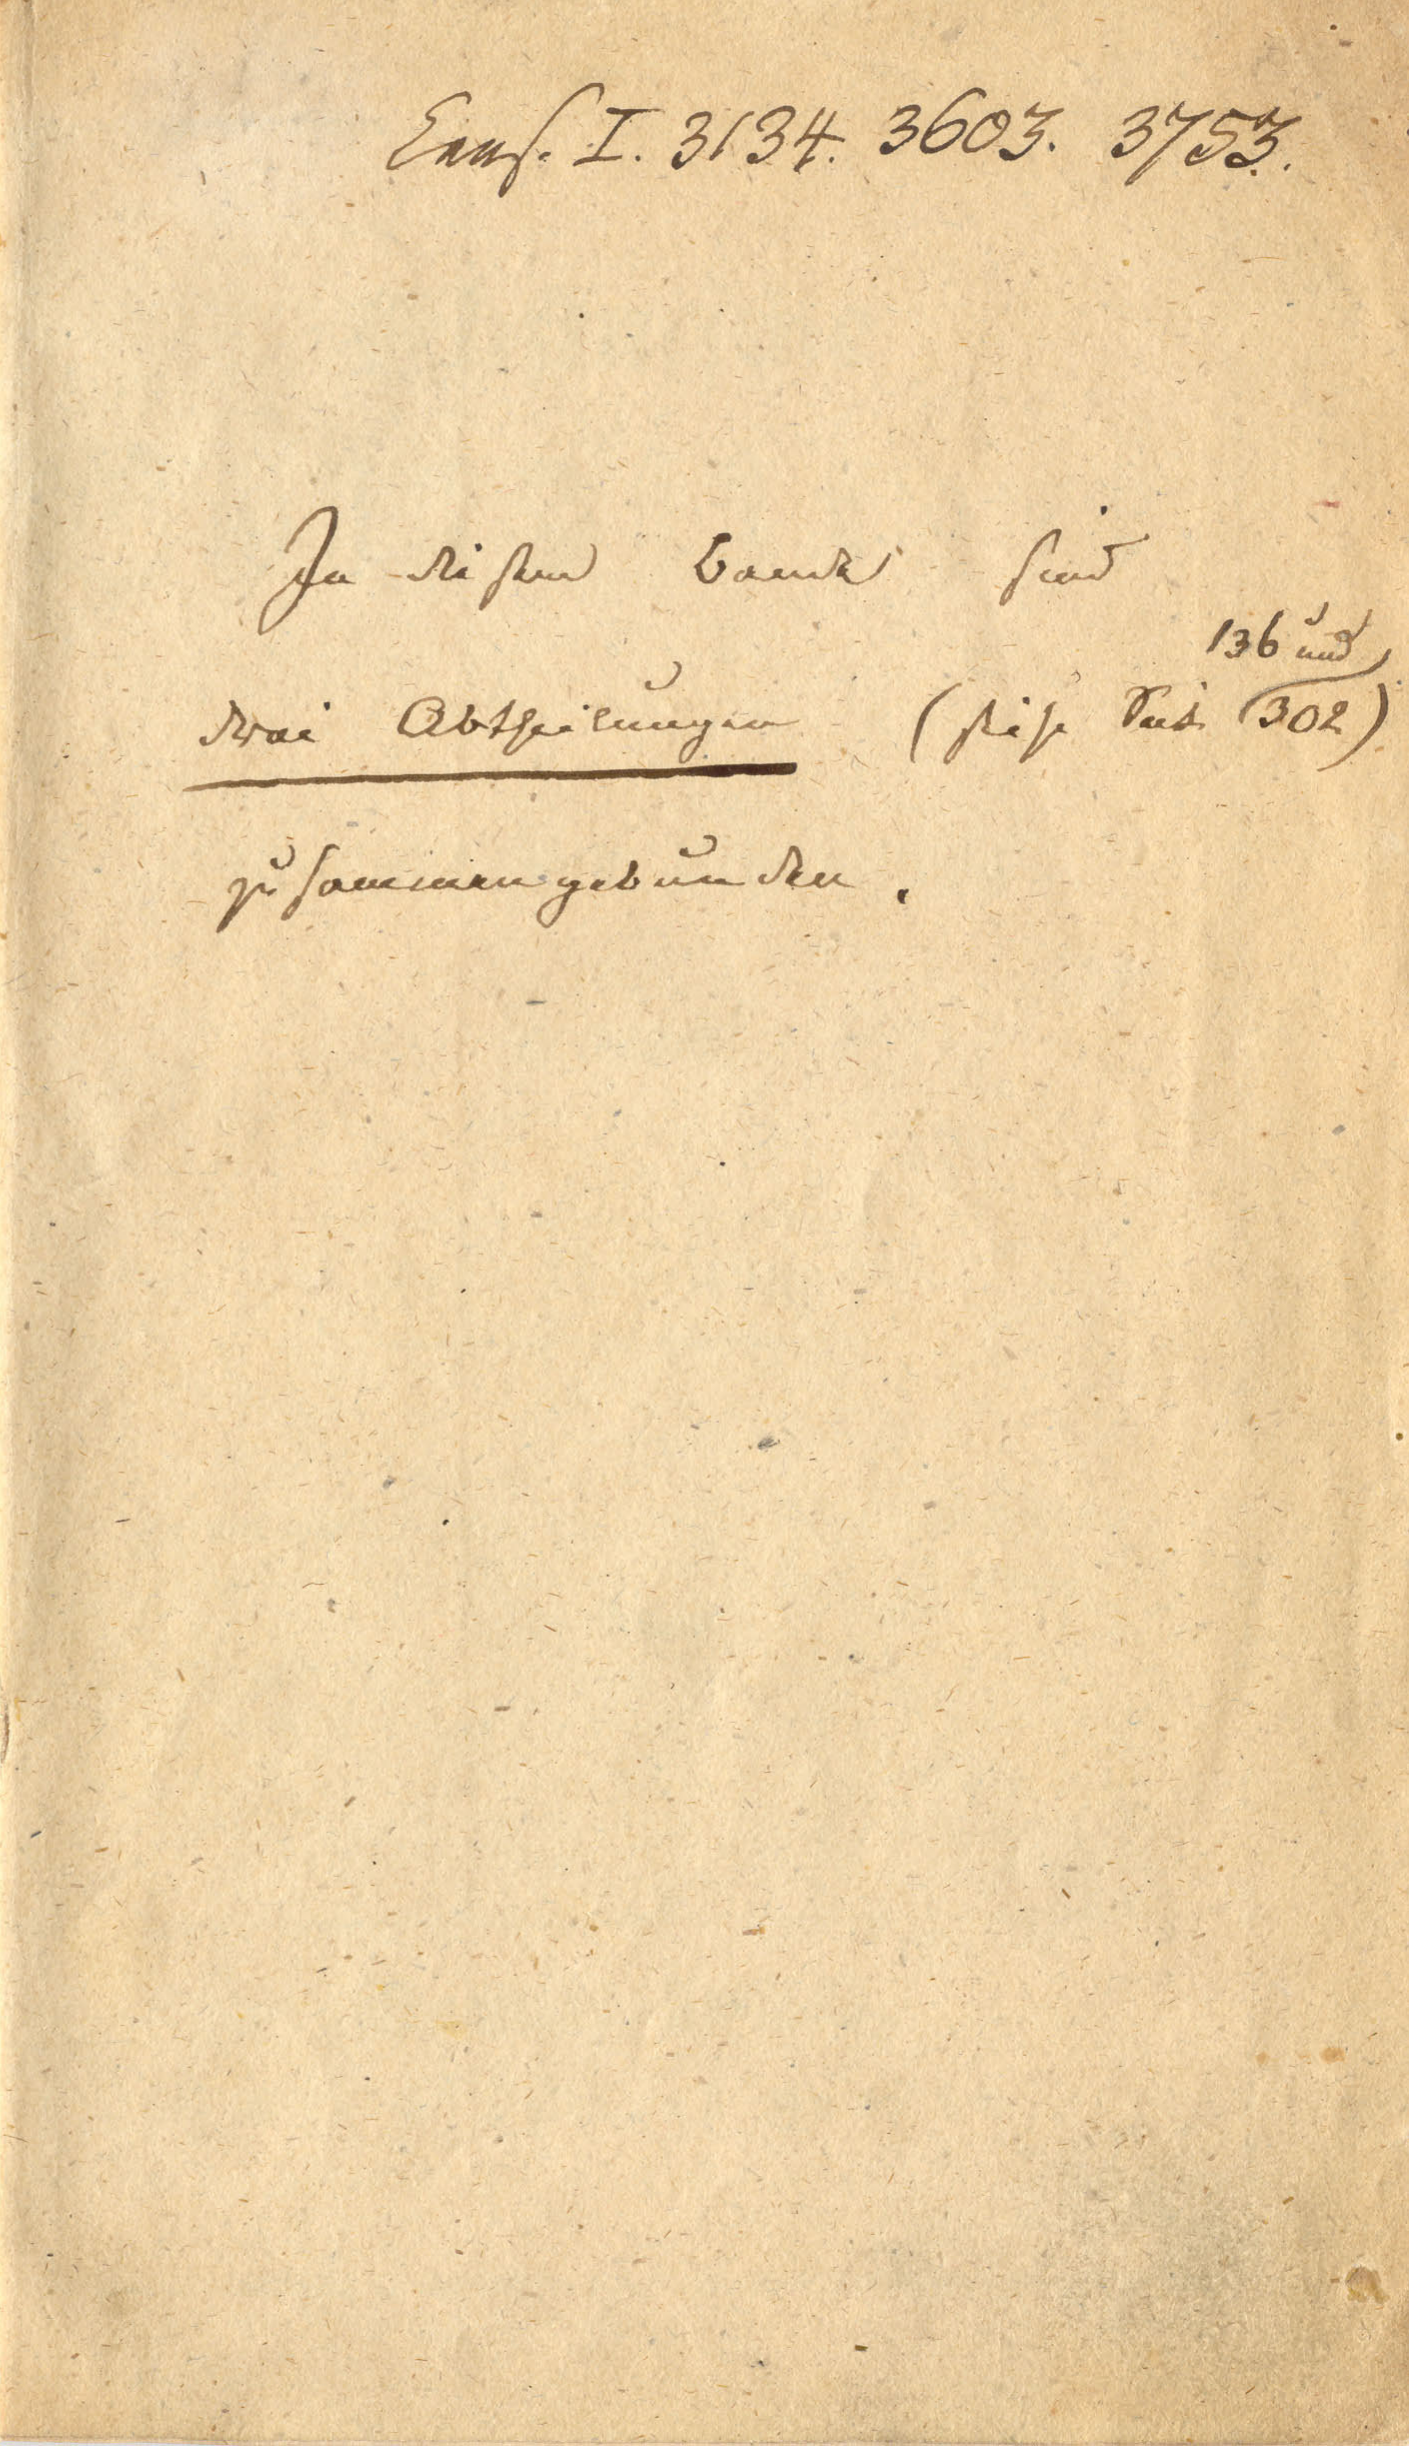 I. 3134. 3603. 3753.
In diesem Bande sind
136 und
drei Abtheilungen (siehe Seite 302)
zusammengebunden.